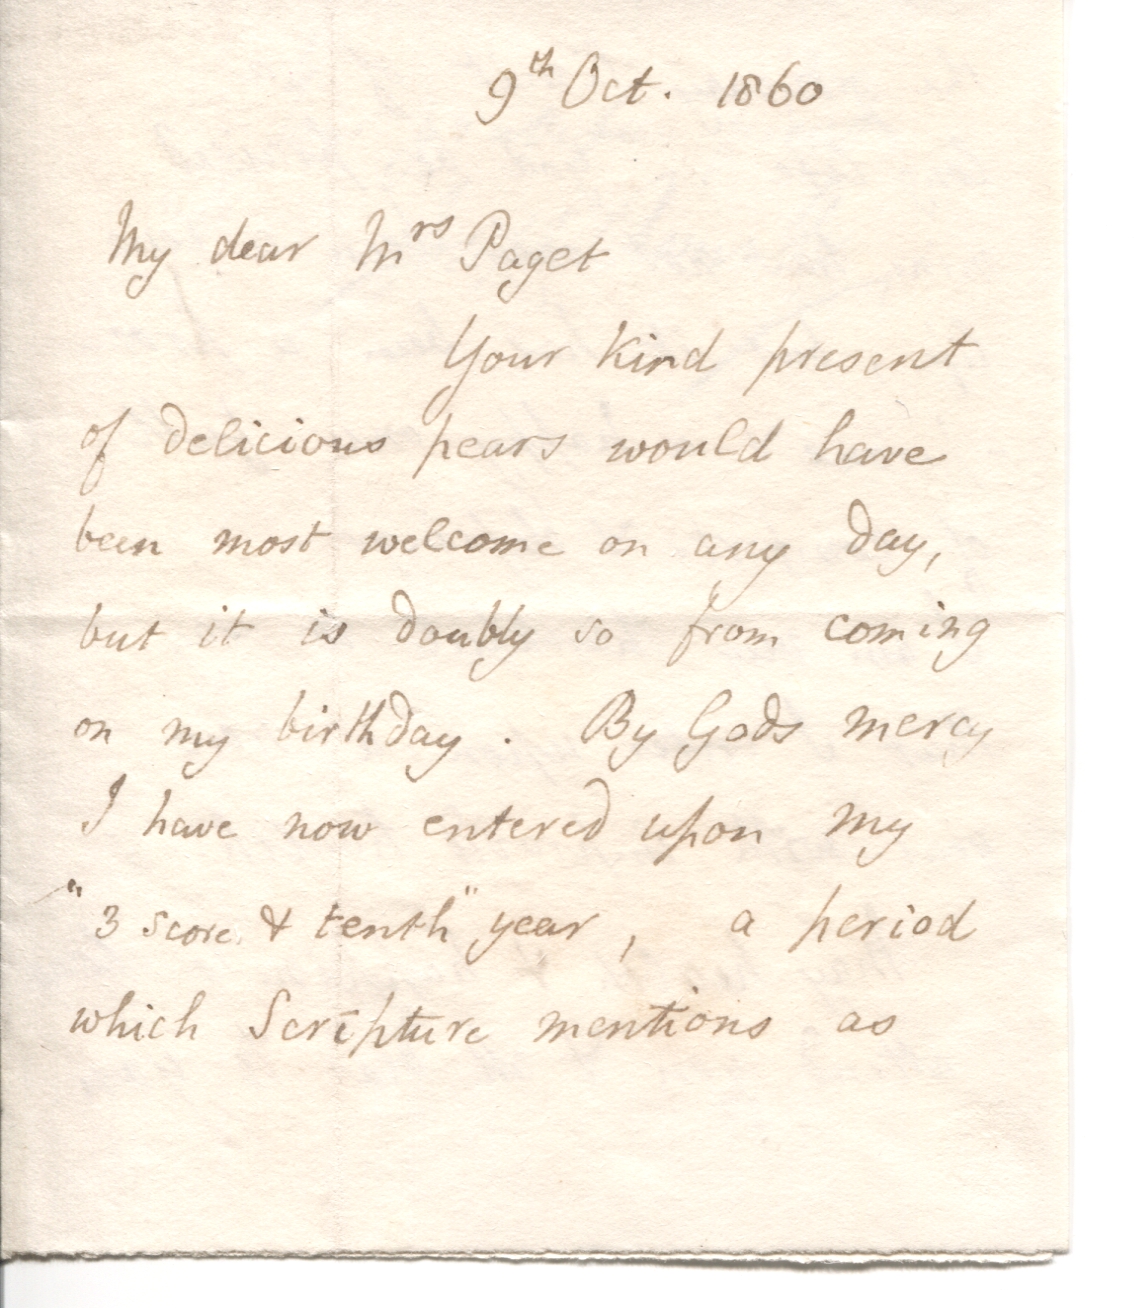 9th Oct. 1860
My dear Mrs Paget
Your kind present
of delicious pears would have
been most welcome on any day,
but it is doubly so from coming
on my birthday. By Gods mercy
I have now entered upon my
"3 score & tenth" year, a period
which Scripture mentions as